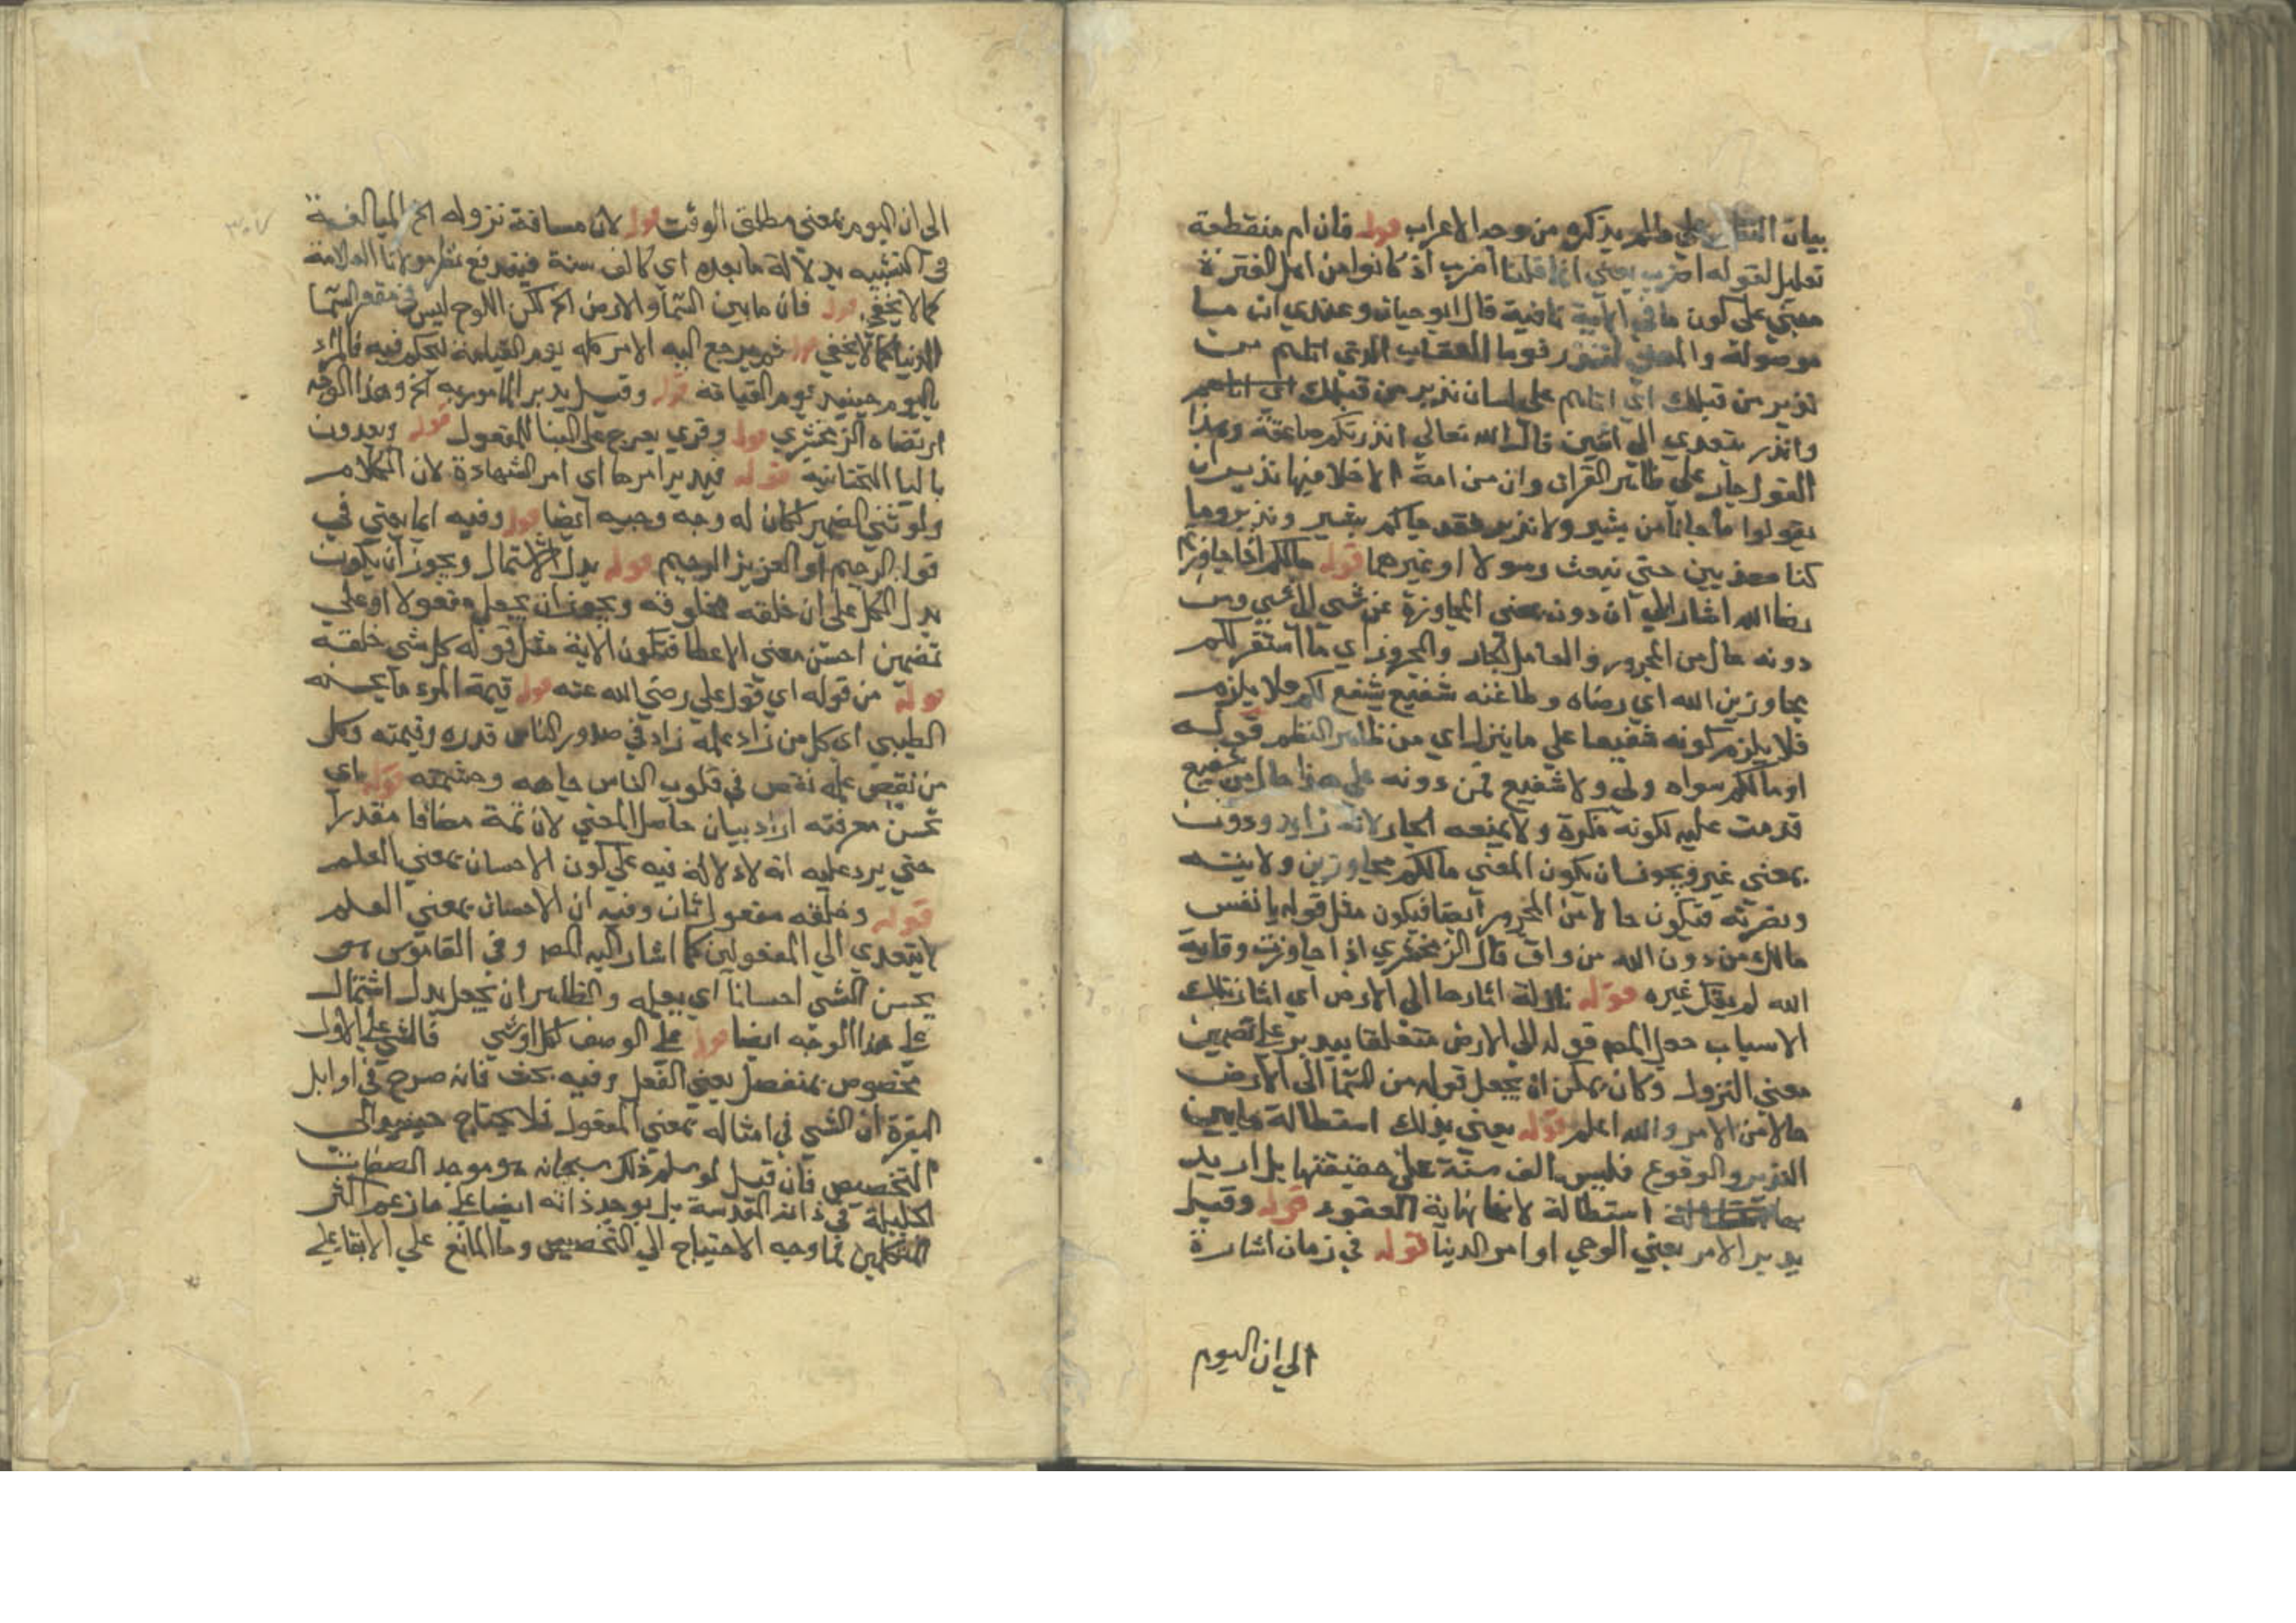 بيان النظم علي ما لم يذكره من وجد الاعراب قوله فان ام منقطعة
تعليل لقوله اضرب يعني انما قلنا اضرب اذ كانوا من اهل الفترة
مبني علي كون ما في الآية نافية قال ابو حيان وعندي ان ما
موصولة والمعني لتنذر قوما العقاب الذي اتاهم من
نذير من قبلك اي اتاهم علي لسان نذير من قبلك
وانذر يتعدي الي اثنين قال الله تعالي انذرتكم صاعقة وهذا
القول جار علي ظاهر القران وان من امة الا خلا فيها نذير ان
يقولوا ما جاءنا من بشير ولا نذير فقد جاكم بشير ونذير وما
كنا معذبين حتي نبعث رسولا او غيرهما قوله مالكم اذا جاوزتم
رضا الله اشار الي ان دون بمعني المجاوزة عن شي الي شي ومن
دونه حال من المجرور والعامل الجار والمجرور اي ما استقر لكم
مجاوزين الله اي رضاه وطاعته شفيع يشفع لكم ولا يلزم
فلا يلزم كونه شفيعا علي ما ينزل اي من ظاهر النظم قوله
او مالكم سواه ولي ولا شفيع فمن دونه علي هذا حال من شفيع
قدمت عليه لكونه نكرة ولا يمنعه الجار لانه زايد ودون
بمعني غير ويجوز ان يكون المعني مالكم مجاوزين ولايته
ونصرته فتكون حالا من المجرور ايضا فيكون مثل قوله يا نفس
مالك من دون الله من واق قال الزمخشري اذا جاوزت وقاية
الله لم يقك غيره قوله نازلة اثارها الي الارض اي اثار تلك
الاسباب جعل المص قوله الي الارض متعلقا بيدبر علي تضمين
معني النزول وكان يمكن ان يجعل قوله من السما الي الارض
حالا من الامر والله اعلم قوله يعني بذلك استطالة ما بين
التدبير والوقوع فليس الف سنة علي حقيقتها بل اريد
بها استطالة لانها نهاية العقود قوله وقيل
يدبر الامر يعني الوحي او امر الدنيا قوله في زمان اشارة
الي ان اليوم
الي ان اليوم بمعني مطلق الوقت قوله لان مسافة نزوله الخ المبالغة
في التشبيه بدلالة ما بعده اي كالف سنة فيندفع نظر مولانا العلامة
كما لا يخفي قوله فان ما بين السما والارض الخ لكن اللوح ليس في مقعر السما
الدنيا كما لا يخفي قوله ثم يرجع اليه الامر كله يوم القيامة ليحكم فيه فالمراد
باليوم حينيذ يوم القيامة قوله وقيل يدبر المامور به الخ وهذا الوجه
ارتضاه الزمخشري قوله وقري يعرج علي البنا للمفعول قوله ويعدون
باليا التحتانية قوله فيدبر امرها اي امر الشهادة لان الكلام
ولو ثني الضمير لكان له وجه وجيه ايضا قوله وفيه ايما يعني في
قوله الرحيم او العزيز الرحيم قوله بدل الاشتمال ويجوز ان يكون
بدل الكل علي ان خلقه مخلوقه ويجوز ان يجعل مفعولا او علي
تضمين احسن معني الاعطا فتكون الاية مثل قوله كل شي خلقه
قوله من قوله اي قول علي رضي الله عنه قوله قيمة المرء ما يحسنه
الطيبي اي كل من زاد علمه زاد في صدور الناس قدره وقيمته وكل
من نقص علمه نقص في قلوب الناس جاهه وحشمته قوله اي
تحسن معرفته اراد بيان حاصل المعني لان ثمة مضافا مقدرا
حتي يرد عليه انه لا دلالة فيه علي كون الاحسان بمعني العلم
قوله وخلقه مفعول ثان وفيه ان الاحسان بمعني العلم
لا يتعدي الي المفعولين كما اشار اليه المص وفي القاموس هو
يحسن الشي احسانا اي يعلمه والظاهر ان يجعل بدل اشتمال
علي هذا الوجه ايضا قوله علي الوصف لكل او شي فالشي علي الاول
مخصوص بمنفصل يعني الفعل وفيه بحث فانه صرح في اوايل
البقرة ان الشي في امثاله بمعني المفعول فلا يحتاج حينيذ الي
التخصيص فان قيل لو سلم ذلك سبحانه هو موجد الصفات
الجليلة في ذاته المقدسة بل يوجد ذاته ايضا علي ما زعم اكثر
المتكلمين فما وجه الاحتياج الي التخصيص وما المانع علي الابقا علي